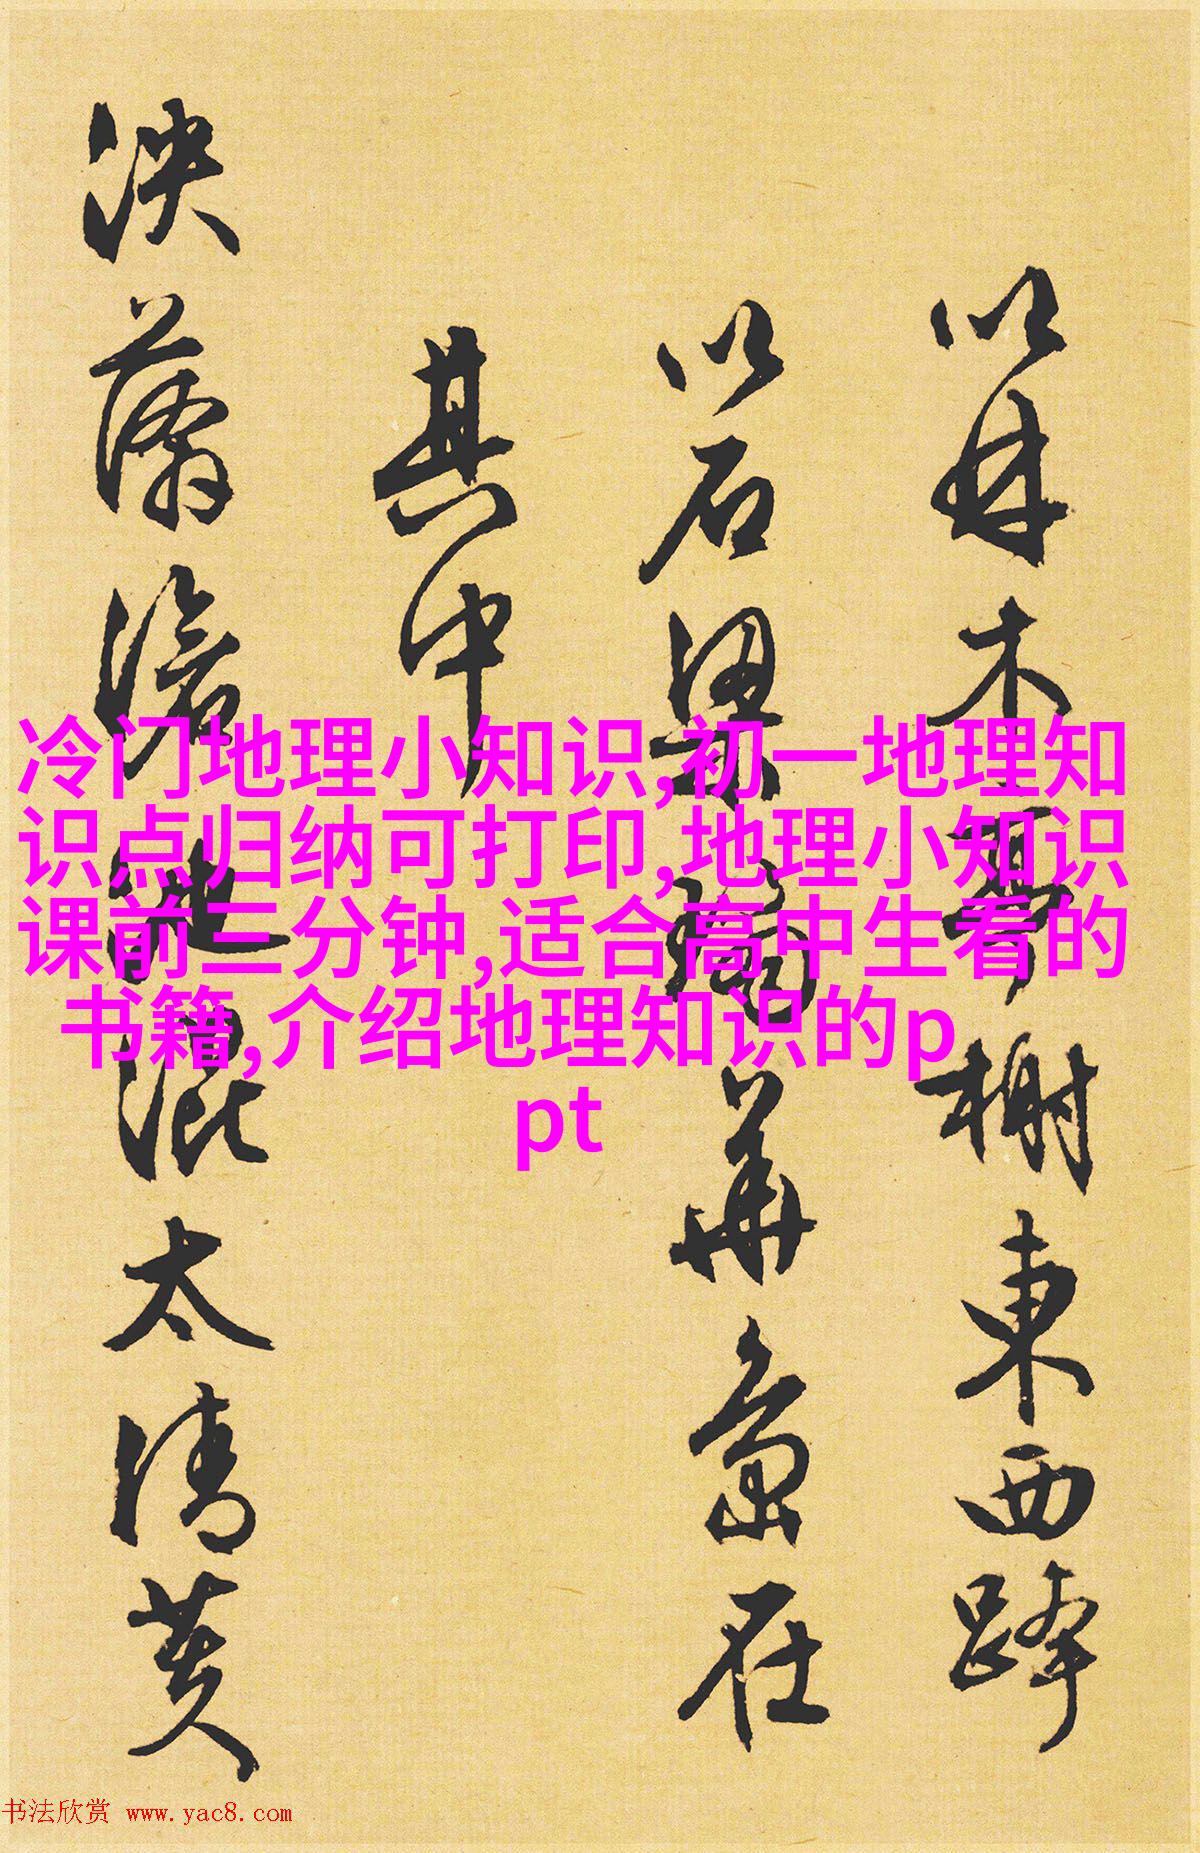 以林木臺榭東西跨
以石梁瑜華島在
其中
泱漭澹沲混太清黄
冷门地理小知识,初一地理知
识点归纳可打印,地理小知识
课前三分钟,适合高中生看的
书籍,介绍地理知识的p
pt
书法欣赏 www.yac8.com